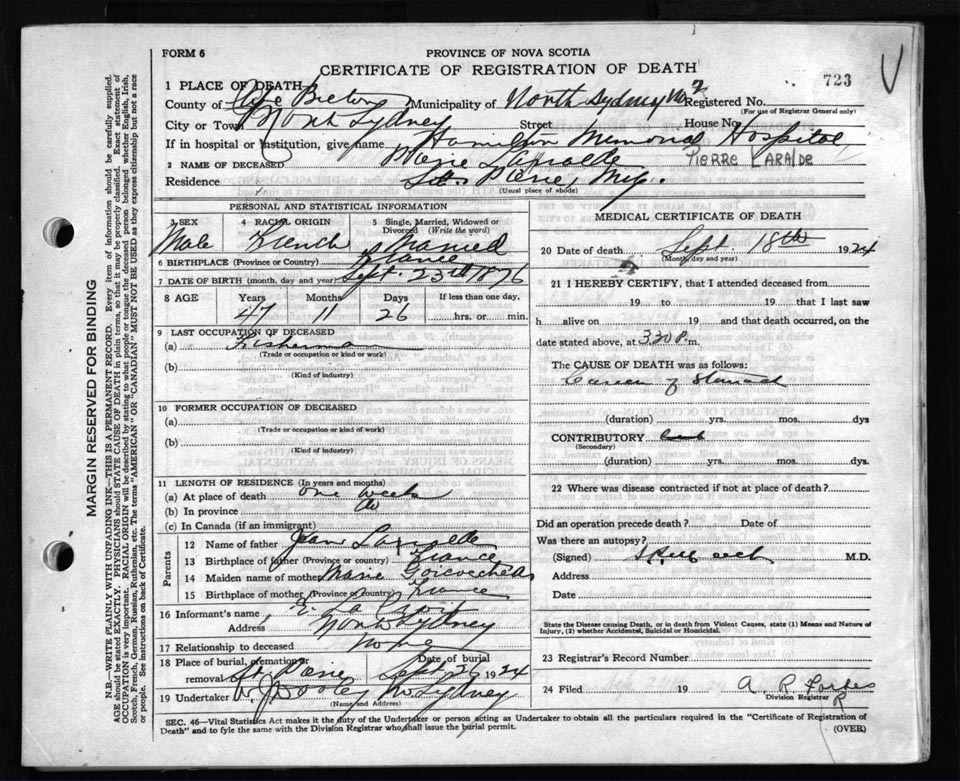 FORM 6
PROVINCE OF NOVA SCOTIA
CERTIFICATE OF REGISTRATION OF DEATH
723
1 PLACE OF DEATH
County of Cape Breton Municipality of North Sydney Registered No.
(For use of Registrar General only)
City or Town North Sydney Street House No.
If in hospital or institution, give name Hamilton Memorial Hospital
2 NAME OF DECEASED Larralde PIERRE LARALDE
Residence St. Pierre, Miq.
(Usual place of abode)
PERSONAL AND STATISTICAL INFORMATION
3 SEX 4 RACIAL ORIGIN 5 Single, Married, Widowed or Divorced (Write the word)
Male French Married
6 BIRTHPLACE (Province or Country) France
7 DATE OF BIRTH (month, day and year) Sept. 23rd 1876
8 AGE Years Months Days If less than one day,
47 11 26 ....hrs. or .... min.
9 LAST OCCUPATION OF DECEASED
(a) Fisherman
(Trade or occupation or kind or work)
(b)
(Kind of industry)
10 FORMER OCCUPATION OF DECEASED
(a)
(Trade or occupation or kind of work)
(b)
(Kind of industry)
11 LENGTH OF RESIDENCE (In years and months)
(a) At place of death one week
(b) In province do
(c) In Canada (if an immigrant)
Parents
12 Name of father Jean Larralde
13 Birthplace of father (Province or country) France
14 Maiden name of mother Marie
15 Birthplace of mother (Province or country) France
16 Informant's name E. La
Address North Sydney
17 Relationship to deceased None
18 Place of burial, cremation or removal St. Pierre Date of burial Sept 20 1924
19 Undertaker W. J. Dooley N. Sydney
(Name and Address)
MEDICAL CERTIFICATE OF DEATH
20 Date of death Sept. 18th 1924
(Month, day and year)
21 I HEREBY CERTIFY, that I attended deceased from
19 to 19 that I last saw
h alive on 19 and that death occurred, on the
date stated above, at 3.30 P. m.
The CAUSE OF DEATH was as follows:
Cancer of Stomach
(duration) yrs. mos. dys
CONTRIBUTORY
(Secondary)
(duration) yrs. mos. dys.
22 Where was disease contracted if not at place of death?
Did an operation precede death? Date of
Was there an autopsy?
(Signed) M.D.
Address
Date
State the Disease causing Death, or in death from Violent Causes, state (1) Means and Nature of Injury, (2) whether Accidental, Suicidal or Homicidal.
23 Registrar's Record Number
24 Filed 19 A R Forbes
Division Registrar
SEC. 46—Vital Statistics Act makes it the duty of the Undertaker or person acting as Undertaker to obtain all the particulars required in the "Certificate of Registration of
Death" and to fyle the same with the Division Registrar who shall issue the burial permit.
(OVER)
MARGIN RESERVED FOR BINDING
N.B.—WRITE PLAINLY WITH UNFADING INK—THIS IS A PERMANENT RECORD. Every item of information should be carefully supplied.
AGE should be stated EXACTLY. PHYSICIANS should STATE CAUSE OF DEATH in plain terms, so that it may be properly classified. Exact statement of
OCCUPATION is very important. RACIAL ORIGIN will be described by stating to what people or tongue the deceased person belonged whether English, Irish,
Scotch, French, German, Russian, Ruthenian, etc. The terms "AMERICAN" or "CANADIAN" MUST NOT BE USED as they express citizenship but not a race
or people. See instructions on back of Certificate.